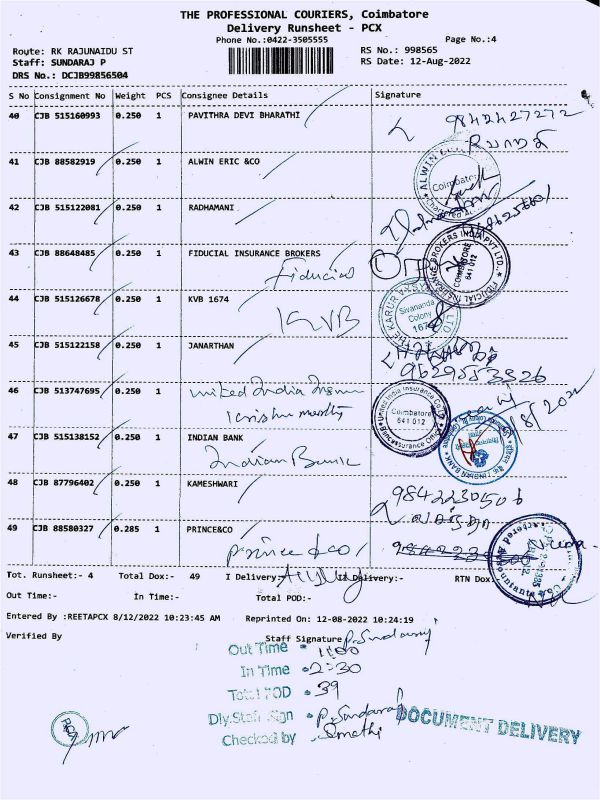 THE PROFESSIONAL COURIERS, Coimbatore
Delivery Runsheet - PCX
Phone No.:0422-3505555
Page No.:4
Route: RK RAJUNAIDU ST
RS No.: 998565
Staff: SUNDARAJ P
RS Date: 12-Aug-2022
DRS No.: DCJB99856504
S No Consignment No Weight PCS Consignee Details Signature
40 CJB 515160993 0.250 1 PAVITHRA DEVI BHARATHI
9842427272
41 CJB 88582919 0.250 1 ALWIN ERIC &CO
ALWIN
Coimbatore
42 CJB 515122081 0.250 1 RADHAMANI
43 CJB 88648485 0.250 1 FIDUCIAL INSURANCE BROKERS
Fiducial
FIDUCIAL INSURANCE BROKERS INDIA PVT LTD.,
COIMBATORE
641 012
44 CJB 515126678 0.250 1 KVB 1674
KVB
THE KARUR VYSYA LTD
Sivananda
Colony
167
45 CJB 515122158 0.250 1 JANARTHAN
9629553326
46 CJB 513747695 0.250 1 United India Insu
krishnamoorthy
United India Insurance Co
Coimbatore
641 012
47 CJB 515138152 0.250 1 INDIAN BANK
Indian Bank
INDIAN BANK
48 CJB 87796402 0.250 1 KAMESHWARI
9842230506
49 CJB 88580327 0.285 1 PRINCE&CO
prince & co
Tot. Runsheet:- 4 Total Dox:- 49 I Delivery:- II Delivery:- RTN Dox
Out Time:- In Time:- Total POD:-
Entered By :REETAPCX 8/12/2022 10:23:45 AM Reprinted On: 12-08-2022 10:24:19
Verified By Staff Signature P. Sundaraj
Out Time 11:00
In Time 2:30
Total POD 39
Dly.Staff Sign P. Sundaraj
Checked by Sumathi
DOCUMENT DELIVERY